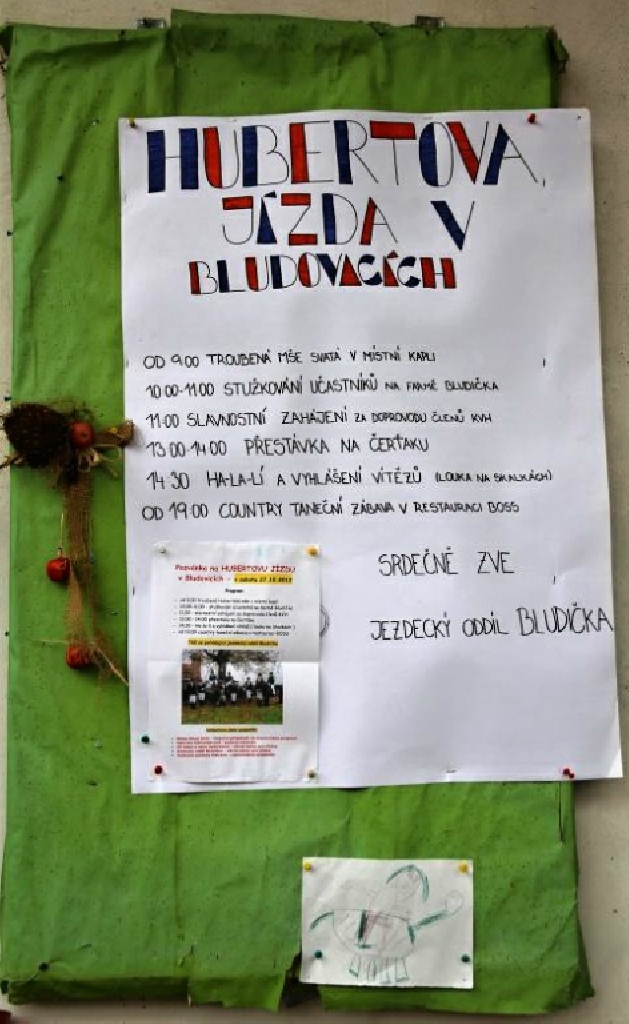 HUBERTOVA
JÍZDA V
BLUDOVICÍCH
OD 9.00 TROUBENÁ MŠE SVATÁ V MÍSTNÍ KAPLI
10.00-11.00 STUŽKOVÁNÍ ÚČASTNÍKŮ NA FARMĚ BLUDIČKA
11.00 SLAVNOSTNÍ ZAHÁJENÍ ZA DOPROVODU ČLENŮ KVH
13.00-14.00 PŘESTÁVKA NA ČERŤAKU
14.30 HA-LA-LÍ A VYHLÁŠENÍ VÍTĚZŮ (LOUKA NA SKALKÁCH)
OD 19.00 COUNTRY TANEČNÍ ZÁBAVA V RESTAURACI BOSS
SRDEČNĚ ZVE
JEZDECKÝ ODDÍL BLUDIČKA
Pozvánka na HUBERTOVU JÍZDU
v Bludovicích
Program